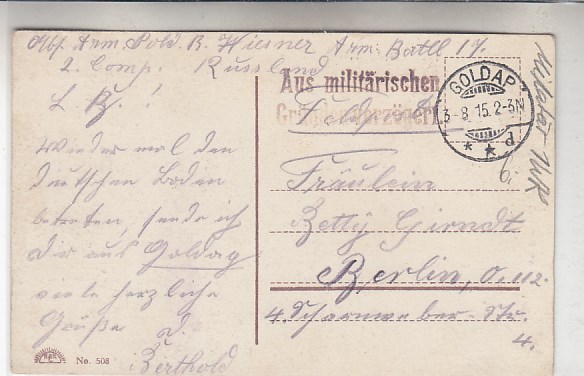 Abs. Arm. Sold. B. Wiesner Arm. Batll 17.
2. Comp. Russland
L. B.!
Wieder mal den
deutschen Boden
betreten, sende ich
dir aus Goldap
viele herzliche
Grüße d.
Berthold
No. 508
Aus militärischen
Gründen verzögert
Feldpost
GOLDAP
3-8 15. 2-3N
* * d
Fräulein
Betty Girndt
Berlin, O. 112
4. Scharnweber Str.
4.